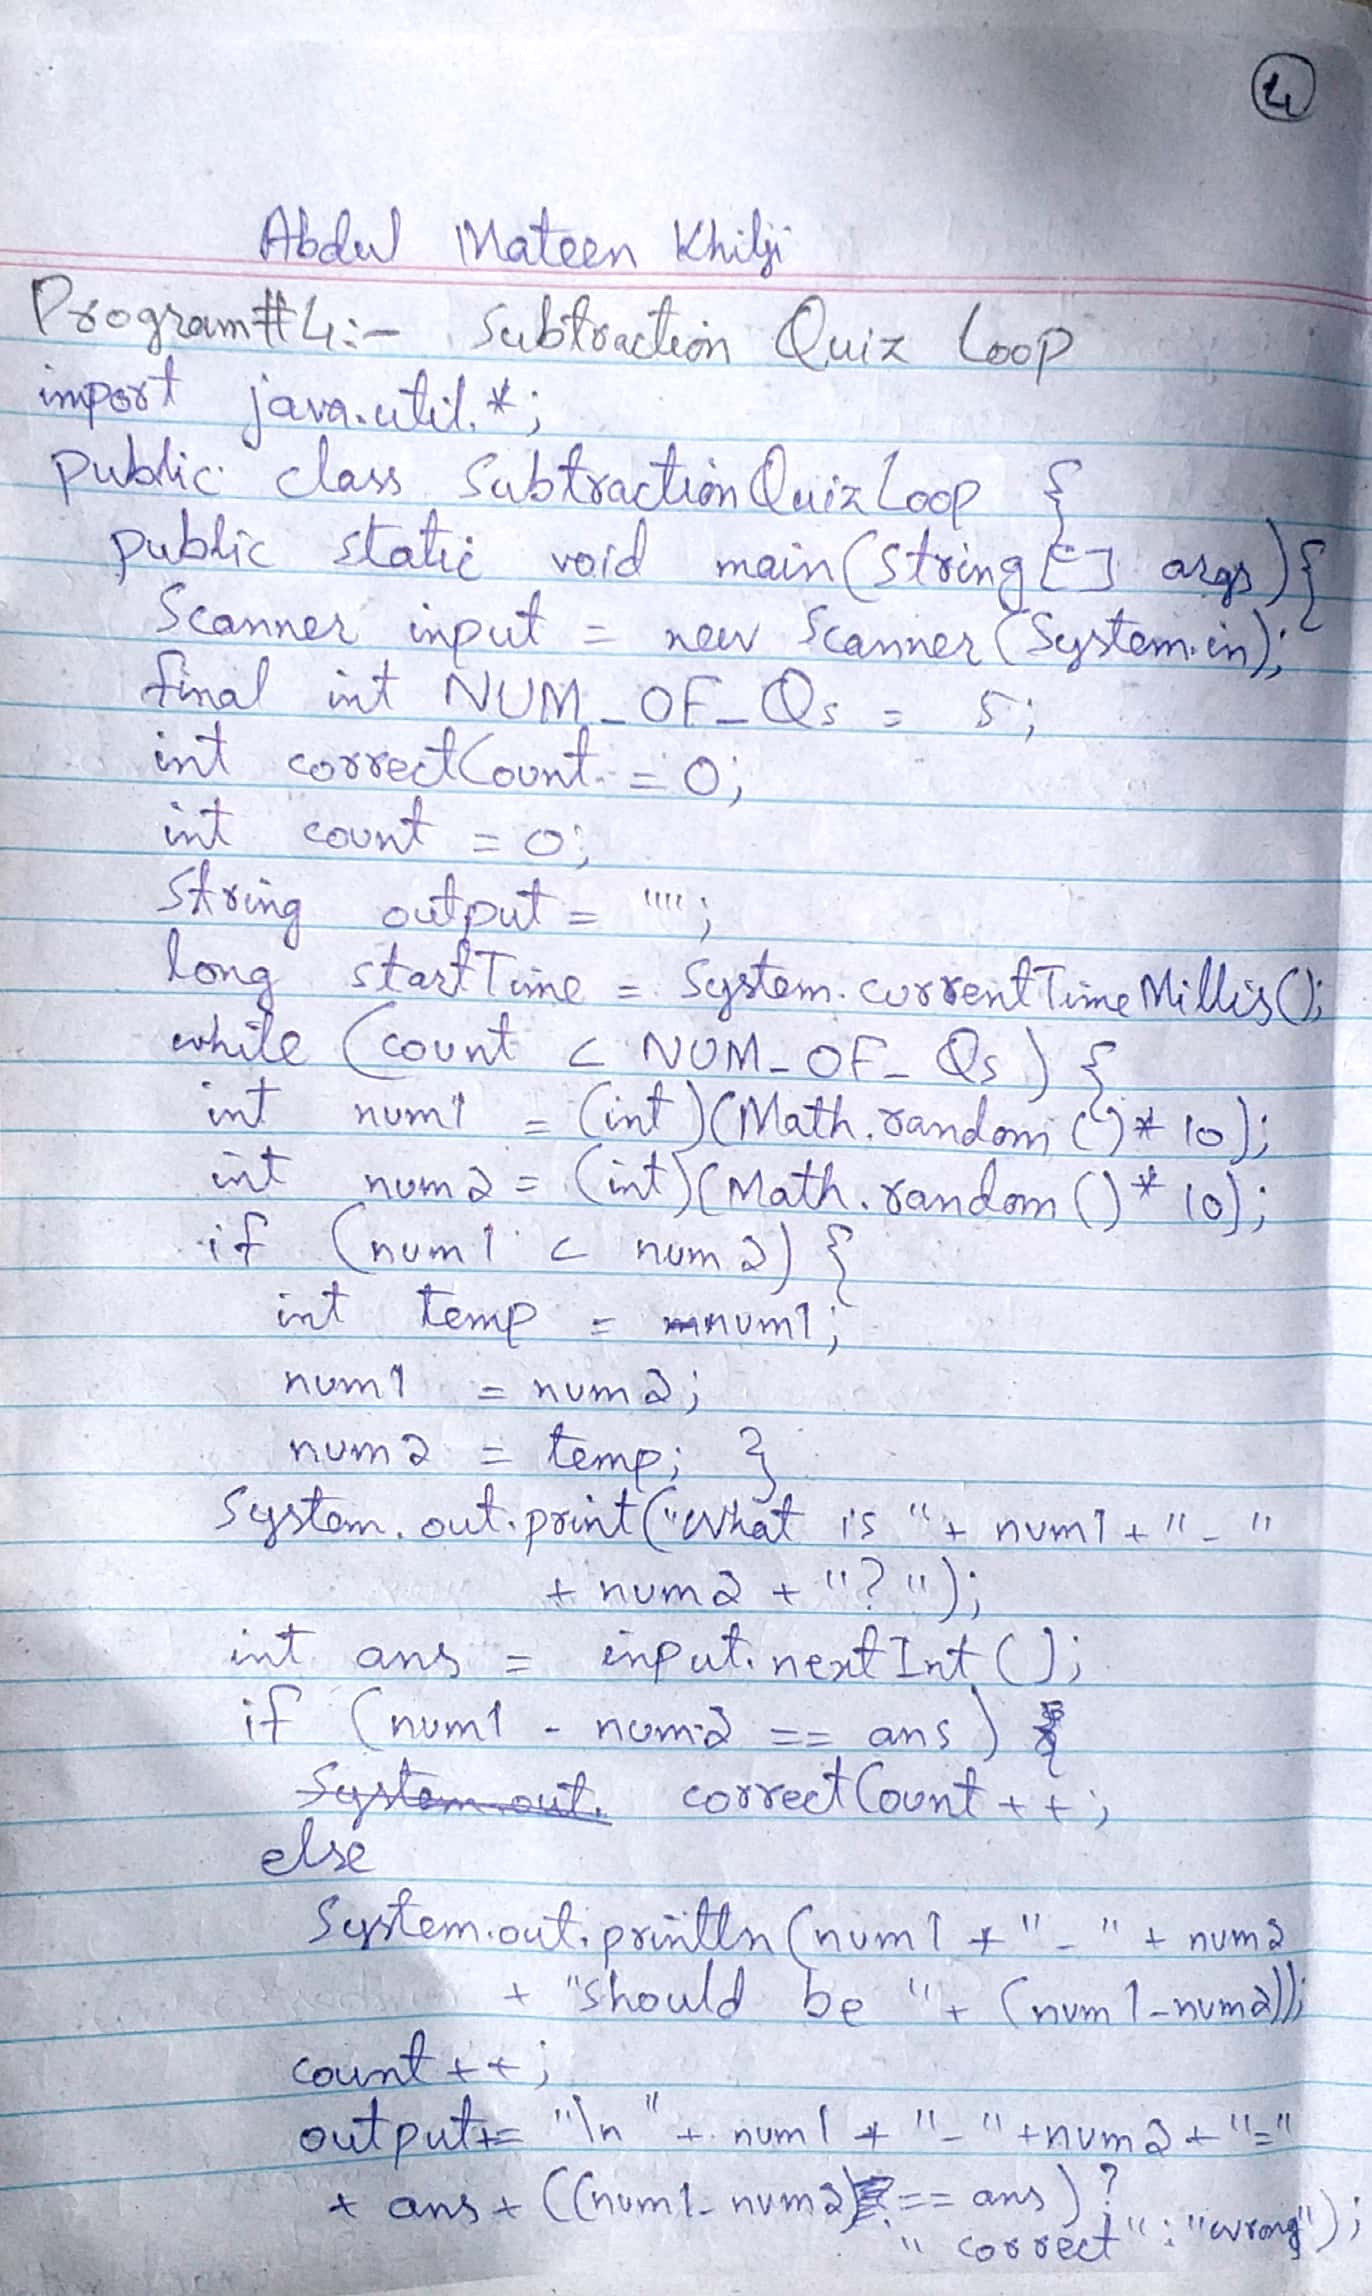 4
Abdul Mateen Khilji
Program#4:- Subtraction Quiz Loop
import java.util.*;
public class SubtractionQuizLoop {
public static void main(String[] args){
Scanner input = new Scanner(System.in);
final int NUM_OF_Qs = 5;
int correctCount = 0;
int count = 0;
String output = "";
long startTime = System.currentTimeMillis();
while (count < NUM_OF_Qs) {
int num1 = (int)(Math.random()* 10);
int num2 = (int)(Math.random()* 10);
if (num1 < num2) {
int temp = num1;
num1 = num2;
num2 = temp; }
System.out.print("What is "+ num1 + "-"
+ num2 + "?");
int ans = input.nextInt();
if (num1 - num2 == ans)
System.out. correctCount++;
else
System.out.println(num1 + "-" + num2
+ "should be "+ (num1-num2));
count++;
output+= "\n" + num1 + "-" +num2 + "="
+ ans + ((num1-num2) == ans)?
"correct" : "wrong");